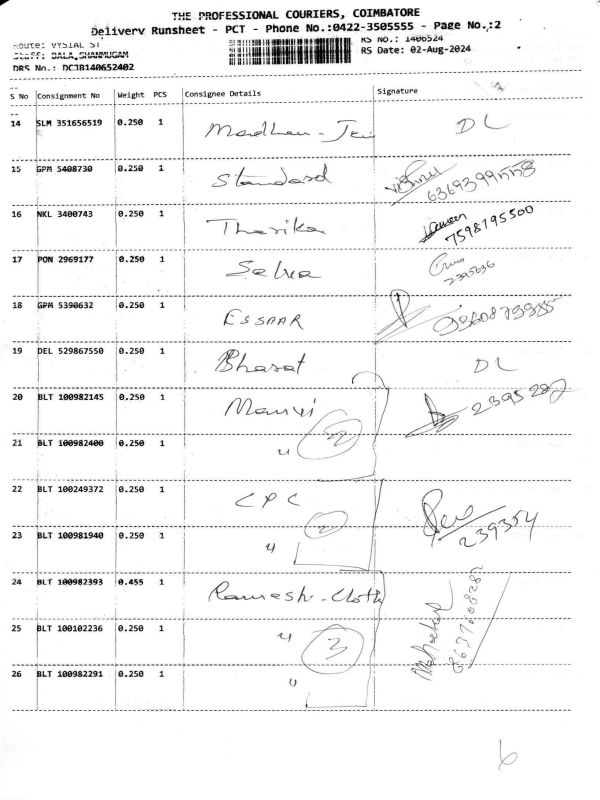 THE PROFESSIONAL COURIERS, COIMBATORE
Delivery Runsheet - PCT - Phone No.:0422-3505555 - Page No.:2
Route: VYSIAL ST
RS No.: 1406524
Staff: BALA,SHANMUGAM
RS Date: 02-Aug-2024
DRS No.: DCJB140652402
S No Consignment No Weight PCS Consignee Details Signature
14 SLM 351656519 0.250 1 DL
15 GPM 5408730 0.250 1 Standard
16 NKL 3400743 0.250 1 Tharika 7598195500
17 PON 2969177 0.250 1
18 GPM 5390632 0.250 1 ESSAAR
19 DEL 529867550 0.250 1 Bharat DL
20 BLT 100982145 0.250 1
21 BLT 100982400 0.250 1 " 2
22 BLT 100249372 0.250 1 CPC 239354
23 BLT 100981940 0.250 1 " 2
24 BLT 100982393 0.455 1 Ramesh-Cloth
25 BLT 100102236 0.250 1 " 3
26 BLT 100982291 0.250 1 "
6